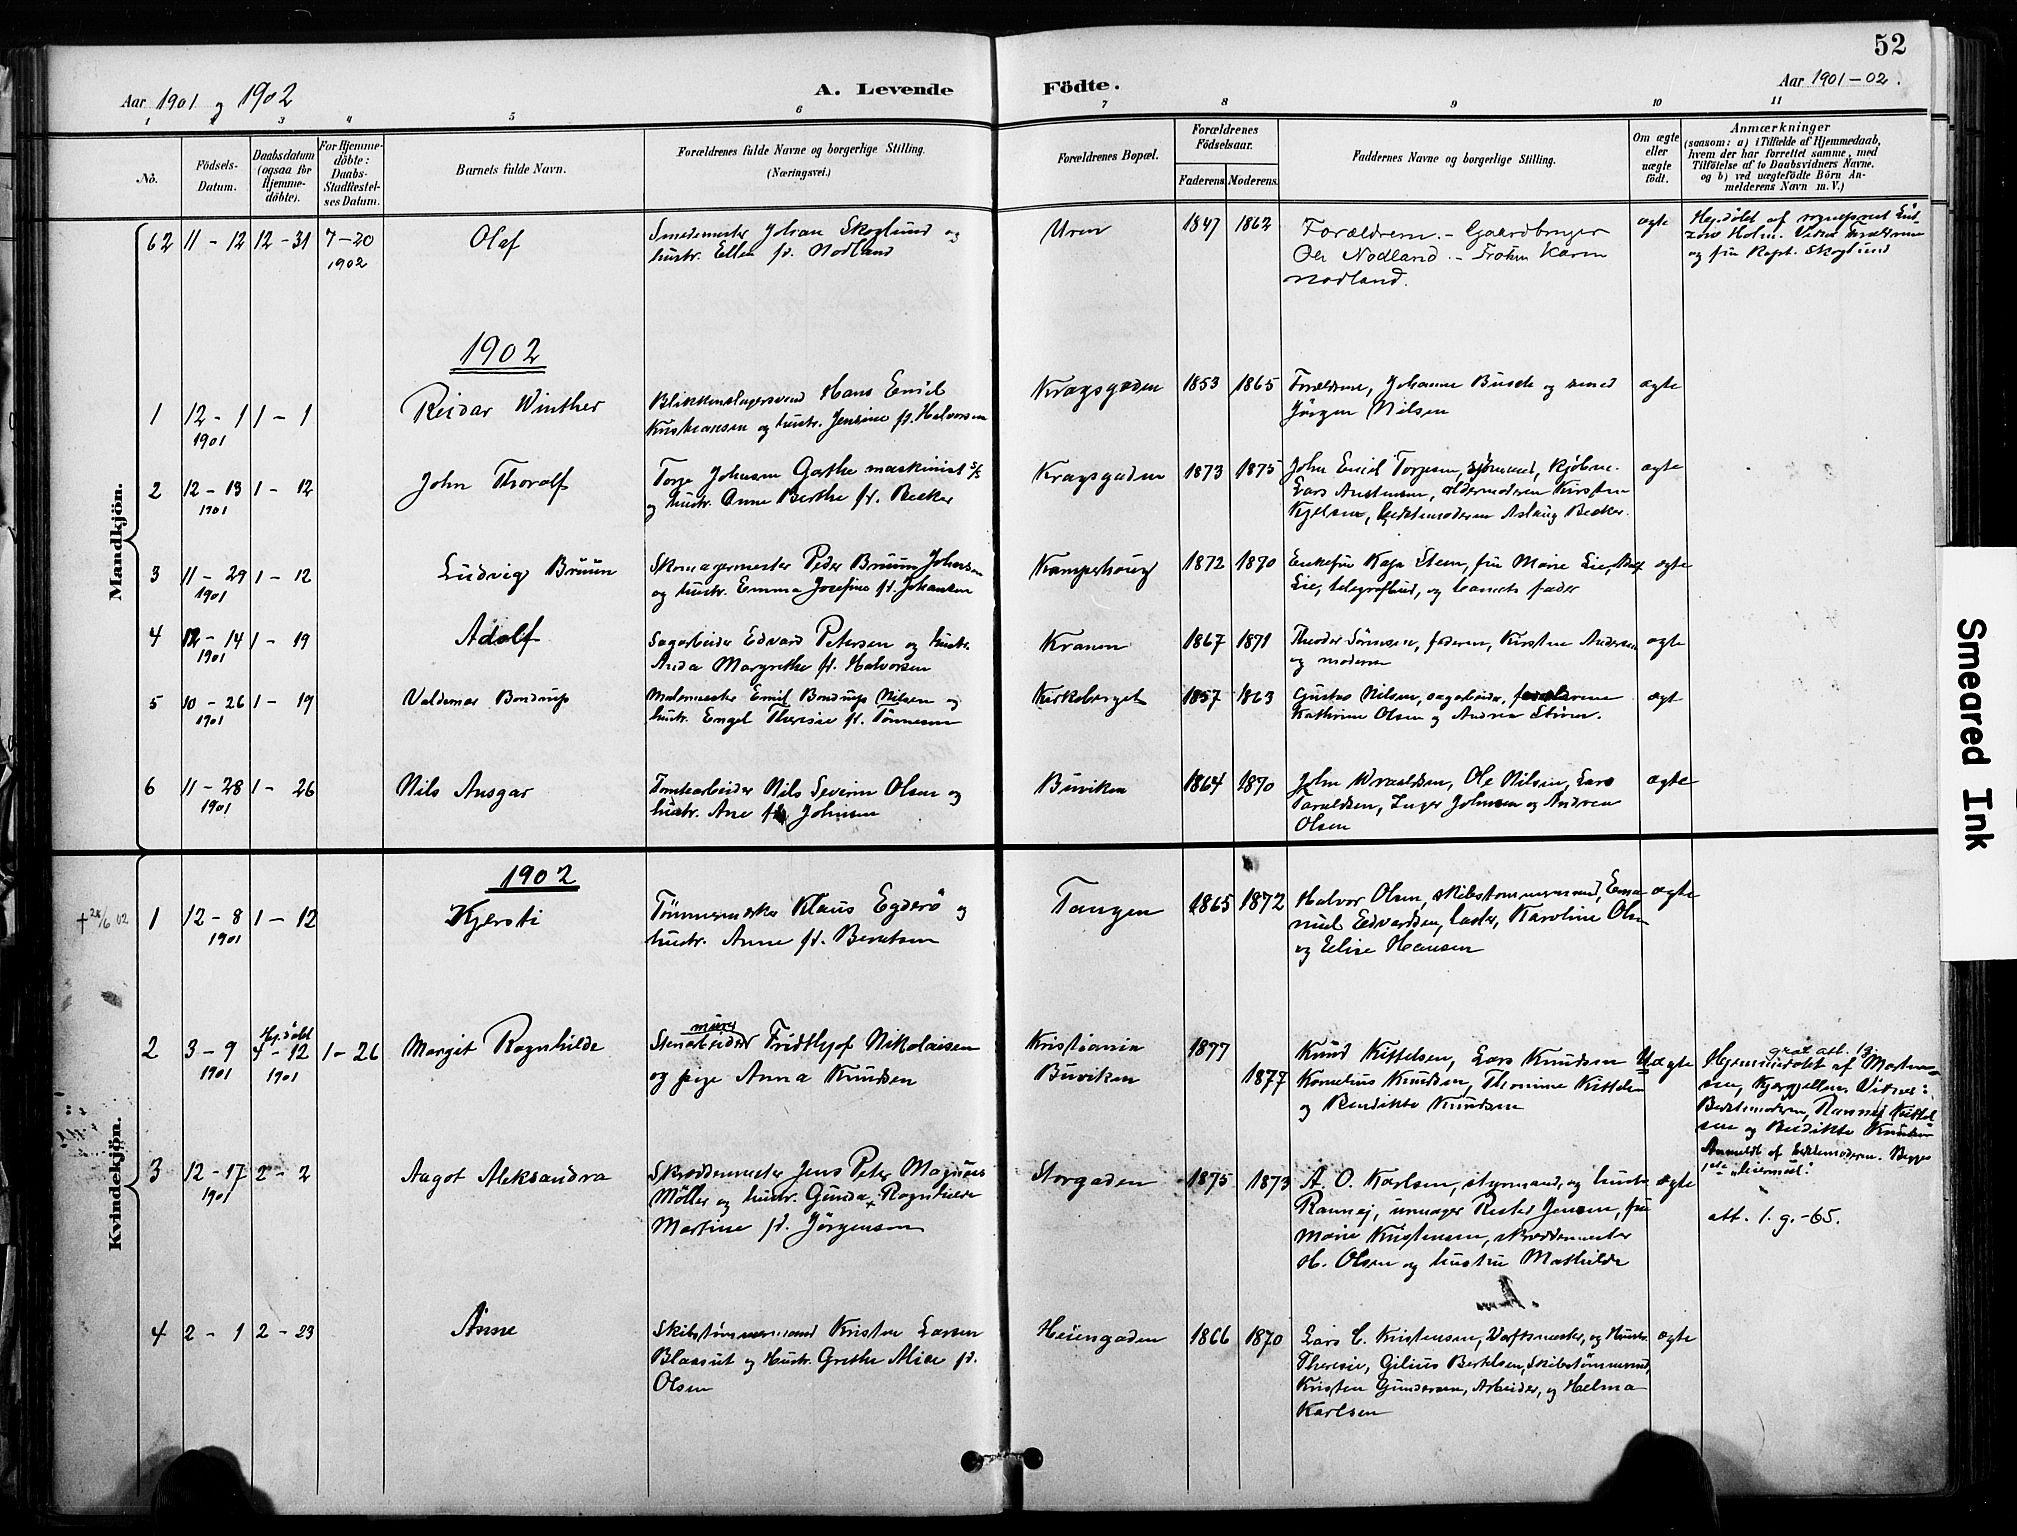 52
Aar 1901 og 1902
A. Levende Födte.
Aar 1901-02.
1 2 3 4 5 6 7 8 9 10 11
No.
Födsels-Datum.
Daabsdatum (ogsaa for Hjemme-döbte).
For Hjemme-döbte: Daabs-Stadfæstel-ses Datum.
Barnets fulde Navn.
Forældrenes fulde Navne og borgerlige Stilling.
(Næringsvei.)
Forældrenes Bopæl.
Forældrenes Födselsaar.
Faderens Moderens
Faddernes Navne og borgerlige Stilling.
Om ægte eller uægte födt.
Anmærkninger
(saasom: a) i Tilfælde af Hjemmedaab,
hvem der har forrettet samme, med
Tilföielse af to Daabsvidners Navne,
og b) ved uægtefödte Börn An-
melderens Navn m. V.)
Mandkjön.
62 11-12 12-31 7-20 1902
Olaf
Smedemester Johan Skoglund og
hustr. Ellen fd. Nodland
Uren
1847 1862
Forældrene. - Gaardbruger
Ole Nodland. - Frøken Karen
Nodland.
ægte
Holm. Vidner Forældrene
og fru Kapt. Skoglund
1902
1 12-1 1901 1-1
Reidar Winther
Blikkenslagersvend Hans Emil
Kristiansen og hustr. Jensine fd. Halvorsen
Kragsgaden
1853 1865
Forældrene, Johanne Busch og smed
Jörgen Nilsen
ægte
2 12-13 1901 1-12
John Thoralf
Torje Johnsen Garthe maskinist S/S
og hustr. Anne Berthe fd. Becker
Kragsgaden
1873 1875
John Emil Torjesen, sjömand, kjöbm.
Lars Austensen, oldemoderen Kirsten
Kjelsen, bedstemoderen Aslaug Becker.
ægte
3 11-29 1901 1-12
Ludvig Bruun
Skomagermester Peder Bruun Johnsen
og hustr. Emma Josefine fd. Johansen
Kamperhoug
1872 1870
Enkefru Kaja Steen, fru Marie Lie,
Lie, telegrafbud, og barnets fader
ægte
4 12-14 1901 1-19
Adolf
Sagarbeider Edvard Petersen og hustr.
Anda Margrethe fd. Halvorsen
Kranen
1867 1871
Theodor Sörensen, faderen, Kirstine Andersen
og moderen
ægte
5 10-26 1901 1-19
Valdemar Bondrup
Malermester Emil Bondrup Nilsen og
hustr. Engel Theresie fd. Tönnesen
Kirkeberget
1857 1863
Gustav Nilsen, sagarbeider, forældrene
Kathrine Olsen og Andrea
ægt
6 11-28 1901 1-26
Nils Ansgar
Tomtearbeider Nils Severin Olsen og
hustr. Ane fd. Johnsen
Buviken
1864 1870
John Wraaldsen, Ole Nilsen, Lars
Taraldsen, Inger Johnsen og Andrea
Olsen
ægte
Kvindekjön.
1902
+ 28/6 02
1 12-8 1901 1-12
Kjersti
Tömmermerker Klaus Egderö og
hustr. Anne fd. Berntsen
Tangen
1865 1872
Halvor Olsen, skibstömmermand, Ema-
nuel Edvardsen, Karoline Olsen
og Elise Hansen
ægte
2 3-9 1901 Hj. döbt 4-12 1901 1-26
Margit Ragnhilde
Stenarbeider Fridthjof Nikolaisen
og pige Anna Knudsen
Kristiania
Buviken
1877
1877
Knud Kittelsen, Lars Knudsen
Kornelius Knudsen, Thomine Kittelsen
og Bendikte Knudsen
Uægte
Hjemmedöbt af
Vidner:
Bedstemoderen, Rannei Kittel-
sen og Bendikte Knudsen
Anmeldt af bedstemoderen. Begges
1ste leiermaal.
3 12-17 1901 2-2
Aagot Aleksandra
Skræddermester Jens Peter Magnus
Möller og hustr. Gunda Ragnhilde
Martine fd. Jörgensen
Storgaden
1875 1873
A. O. Karlsen, styrmand, og hustr.
Rannej, urmager Jensen, fru
Marie Kristensen, skræddermester
H. Olsen og hustru Mathilde
ægte
att. 1. g.-65.
4 2-1 2-23
Anne
Skibstömmermand Kristen Larsen
Blaasut og Hustr. Grethe Mire fd.
Olsen
Heiengaden
1866 1870
Lars C. Kristensen, Værftsmester, og Hustr.
Theresie, Gilius Bertelsen, Skibstömmermd,
Kristen Gundersen, Arbeider, og Helma
Karlsen
ægte
Smeared Ink